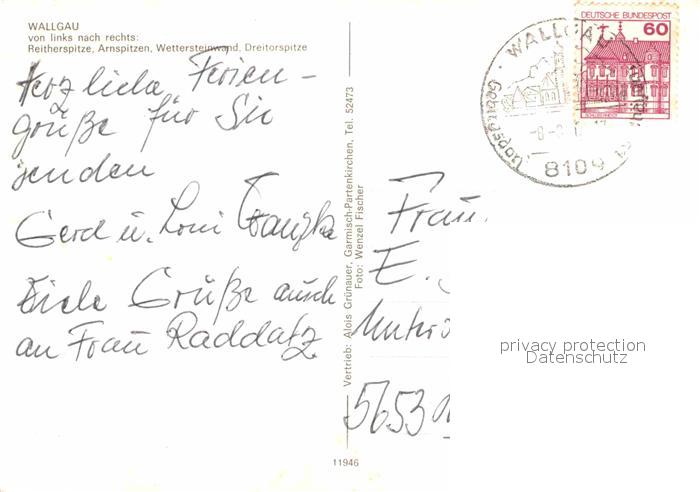 WALLGAU
von links nach rechts:
Reitherspitze, Arnspitzen, Wettersteinwand, Dreitorspitze
Herzliche Ferien-
grüße für Sie
senden
Gerd u. Loni
Viele Grüße auch
an Frau Raddatz.
Vertrieb: Alois Grünauer, Garmisch-Partenkirchen, Tel. 52473
Foto: Wenzel Fischer
11946
DEUTSCHE BUNDESPOST
60
WALLGAU
8109
Frau
E.
5653
privacy protection
Datenschutz